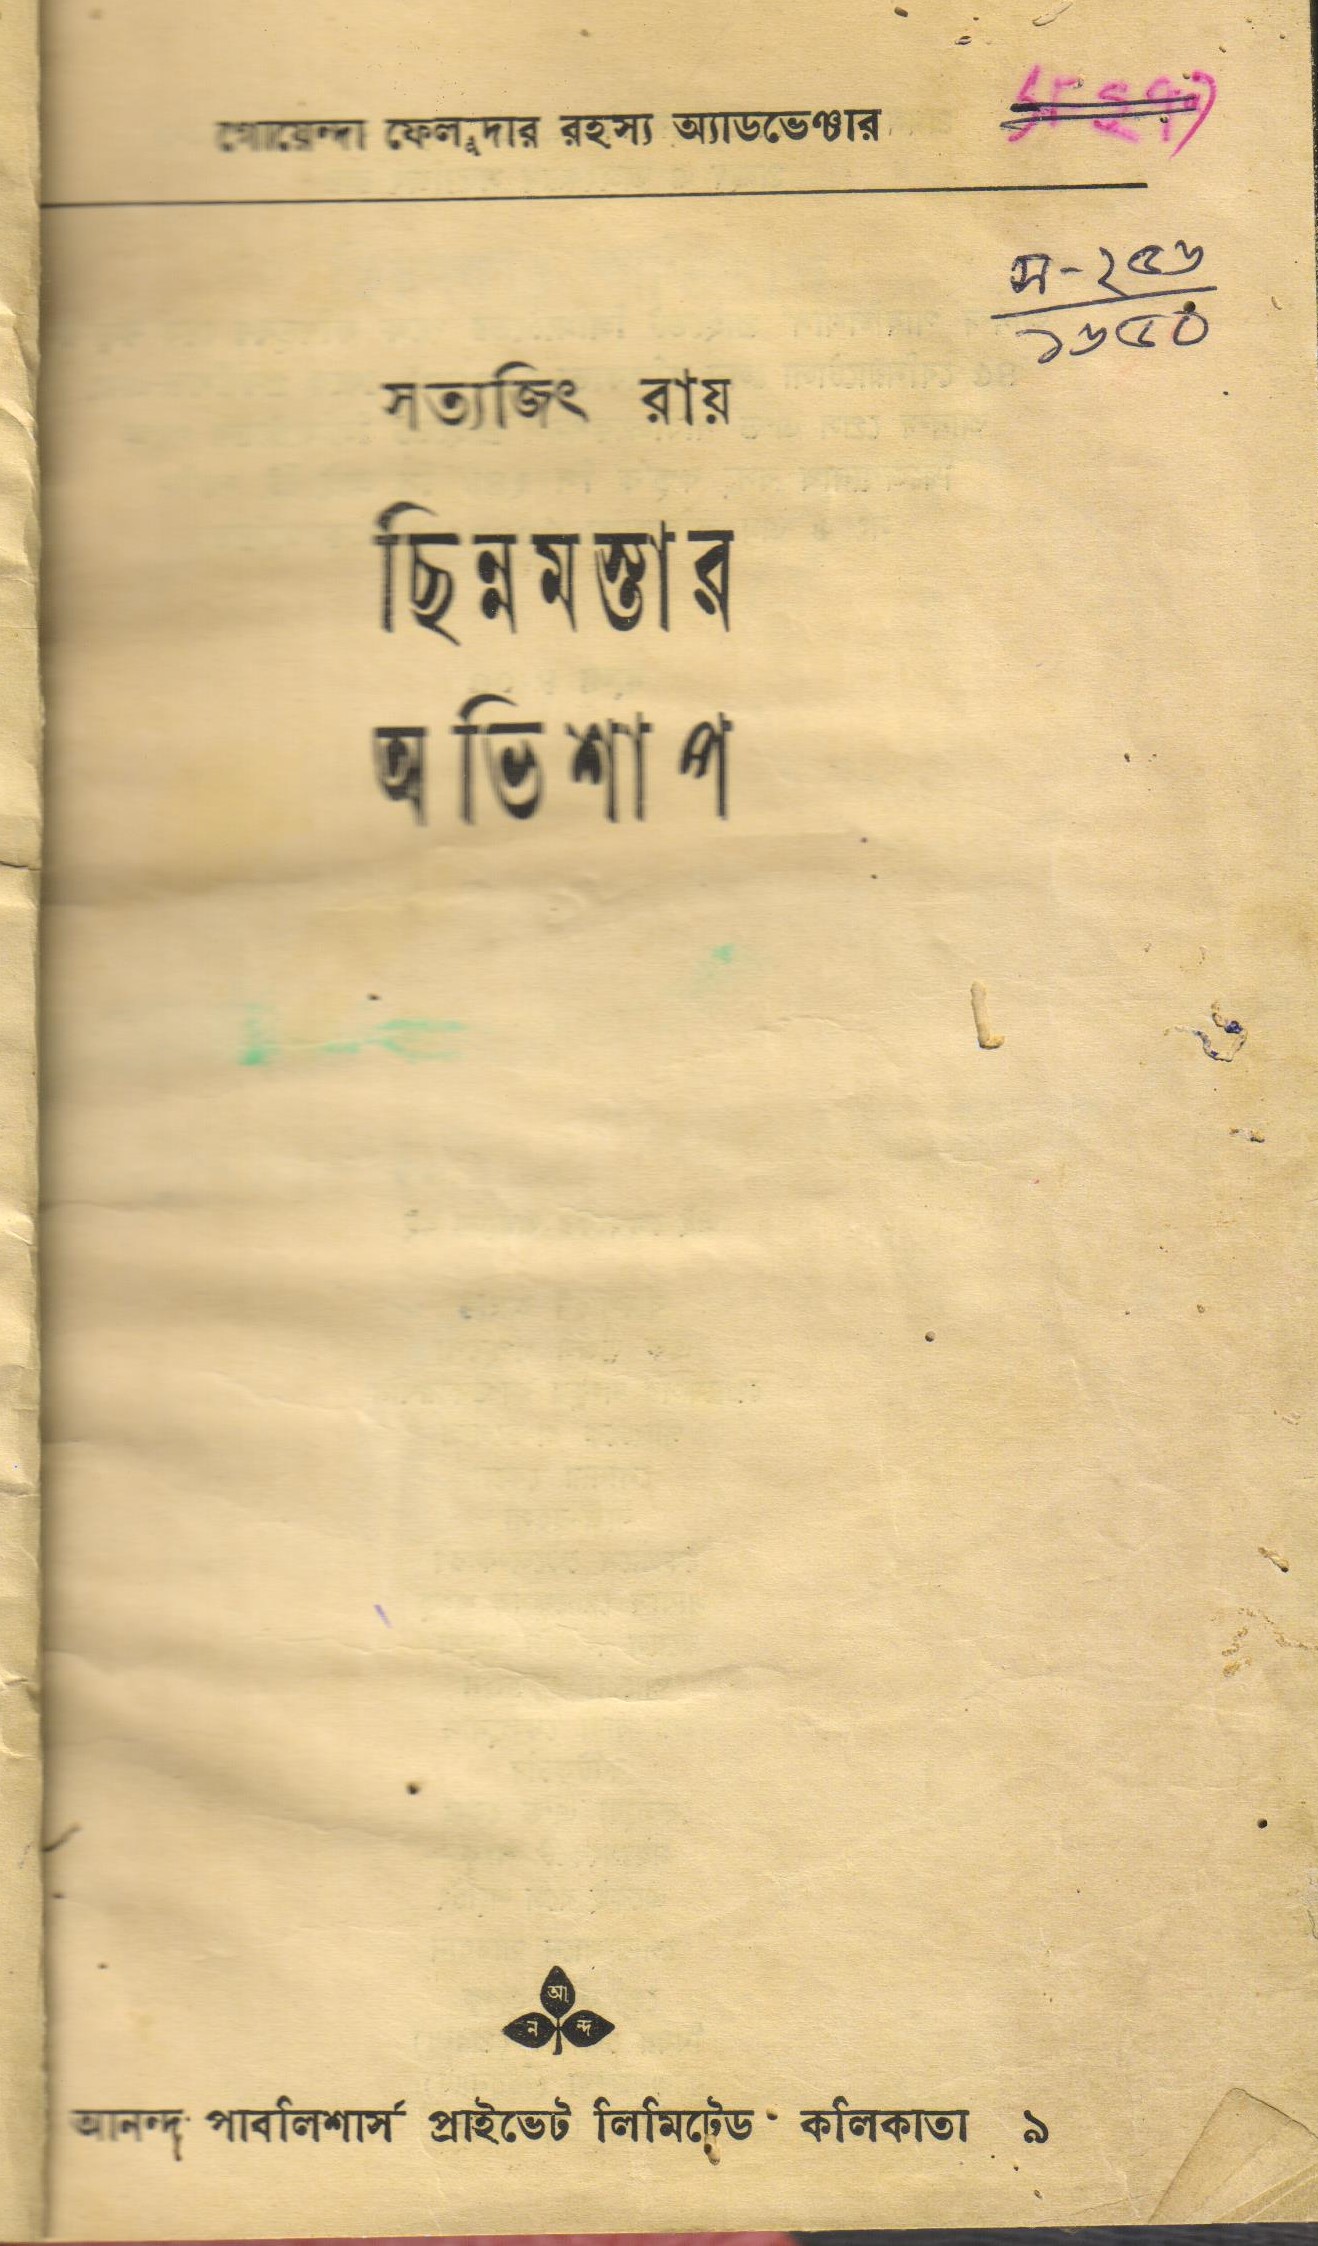 গোয়েন্দা ফেলুদার রহস্য অ্যাডভেঞ্চার
স-২৫৬
১৬৫০
সত্যজিৎ রায়
ছিন্নমস্তার
অভিশাপ
আ
ন ন্দ
আনন্দ পাবলিশার্স প্রাইভেট লিমিটেড · কলিকাতা ৯